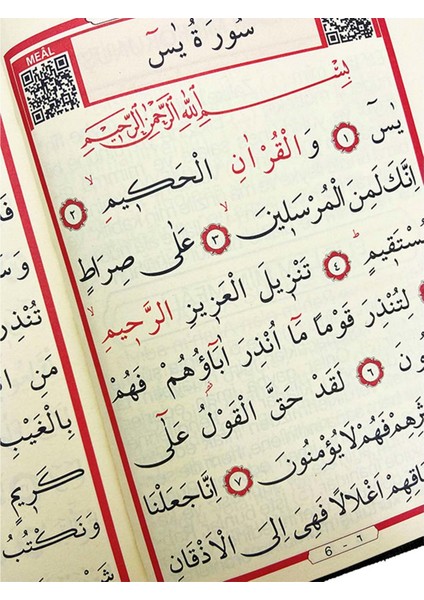 MEÂL
سُورَةُ يٰسٓ
بِسْمِ اللّٰهِ الرَّحْمٰنِ الرَّحٖيمِ
يٰسٓ ﴿١﴾ وَالْقُرْاٰنِ الْحَكٖيمِۙ ﴿٢﴾
اِنَّكَ لَمِنَ الْمُرْسَلٖينَۙ ﴿٣﴾ عَلٰى صِرَاطٍ
مُسْتَقٖيمٍؕ ﴿٤﴾ تَنْزٖيلَ الْعَزٖيزِ الرَّحٖيمِۙ
لِتُنْذِرَ قَوْمًا مَٓا اُنْذِرَ اٰبَٓاؤُهُمْ فَهُمْ
﴿٦﴾ لَقَدْ حَقَّ الْقَوْلُ عَلٰٓى
فَهُمْ لَا يُؤْمِنُونَ ﴿٧﴾ اِنَّا جَعَلْنَا
اَغْلَالًا فَهِىَ اِلَى الْاَذْقَانِ
6 - ٦
تُنْذِرُ
مَنِ
بِالْغَيْبِ
كَرٖيمٍ
وَنَكْتُبُ